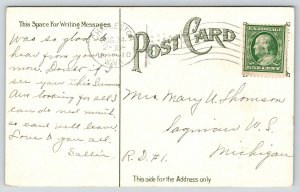 This Space For Writing Messages
POST CARD
Was so glad to
hear from you once
more. Would
see you this
Am looking for all I
can do next month,
so cant well leave.
Love to you all.
Sallie
Mrs. Mary U. Thomson
Saginaw W. S.
Michigan
R.D. #1.
This side for the Address only